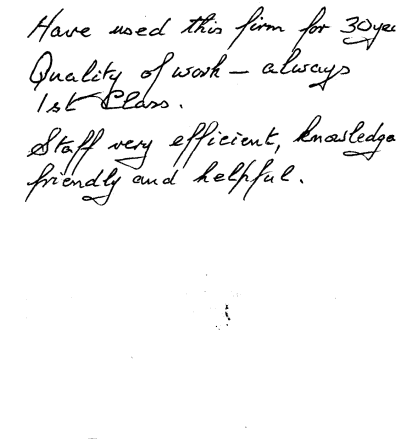 Have used this firm for 30 yea
Quality of work – always
1st Class.
Staff very efficient, knowledge
friendly and helpful.